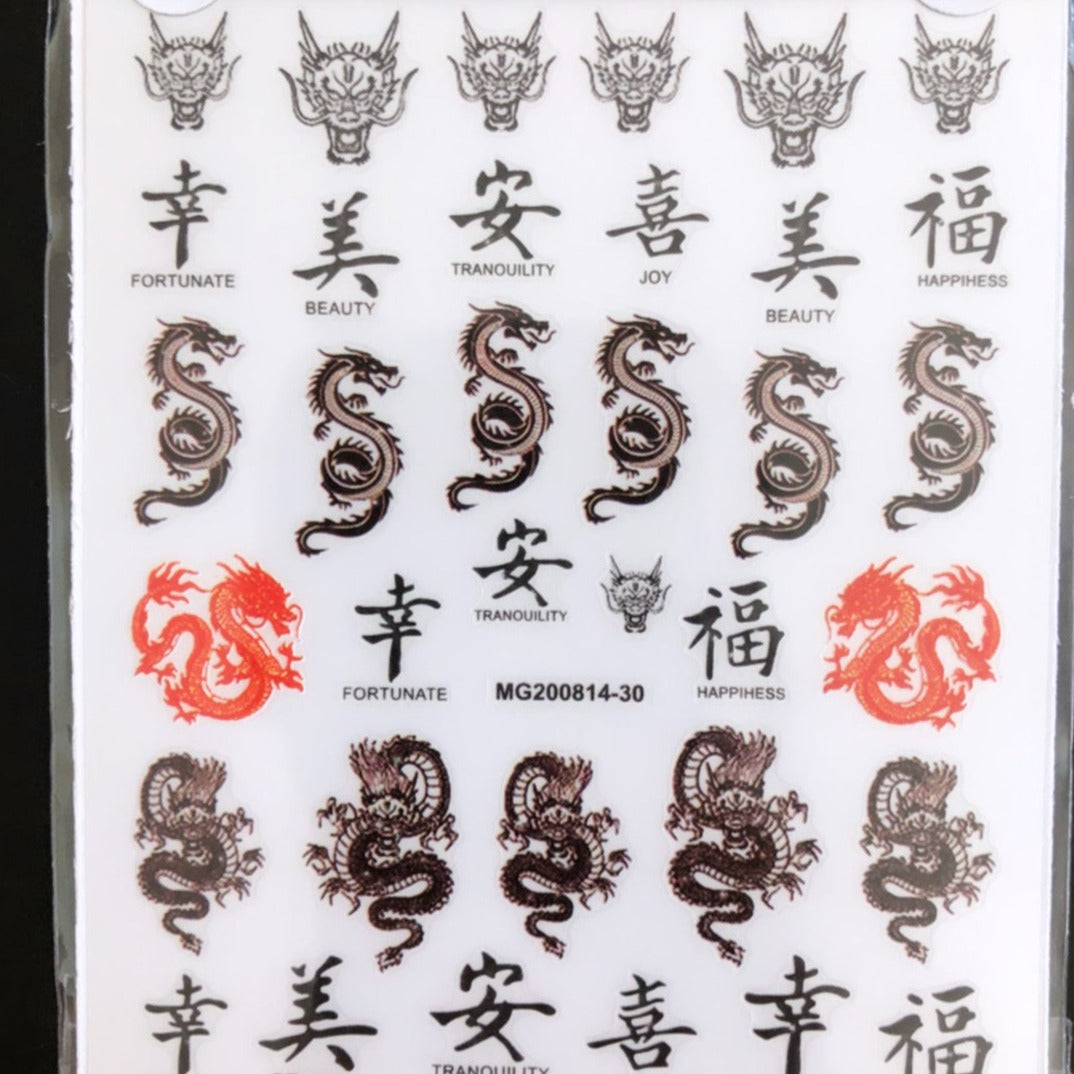 幸 美 安 喜 美 福
FORTUNATE BEAUTY TRANOUILITY JOY BEAUTY HAPPIHESS
安
TRANOUILITY
幸 福
FORTUNATE MG200814-30 HAPPIHESS
幸 美 安 喜 幸 福
TRANOUILITY